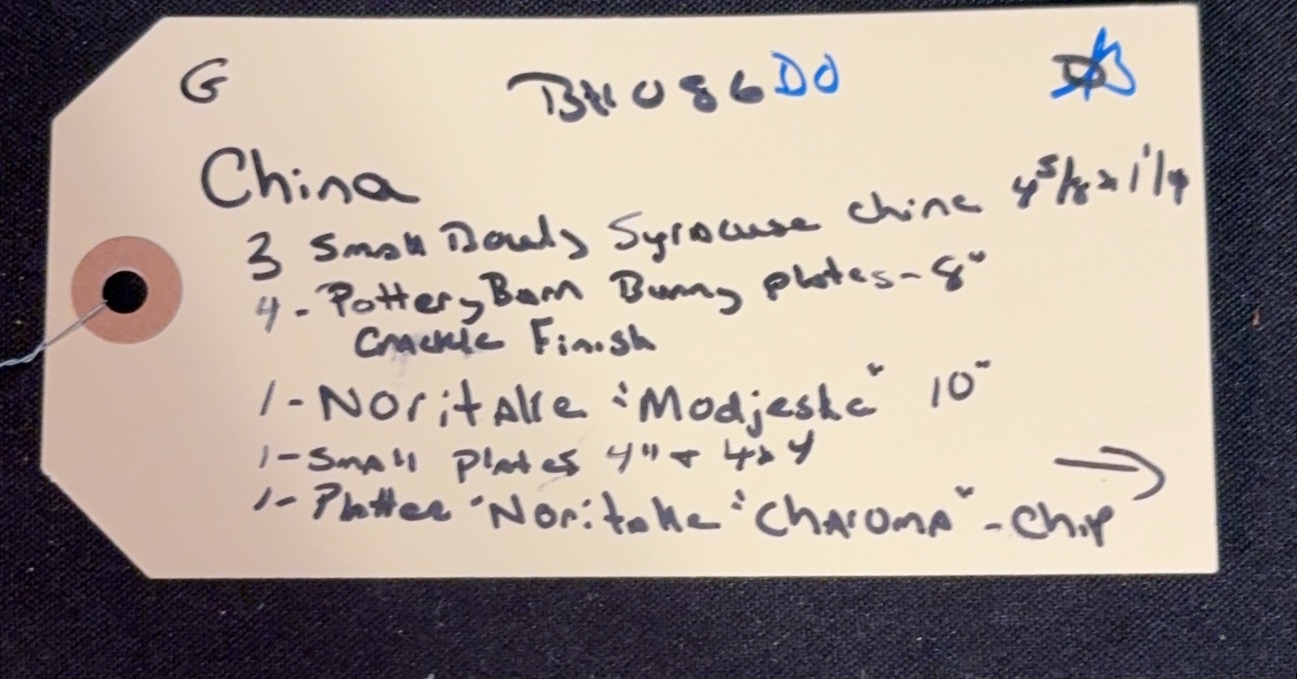 G BH086 DO
China
3 Small Bowls Syracuse China 4 5/8 x 1 1/4
4 - Pottery Barn Bunny plates - 8"
Crackle Finish
1 - Noritake "Modjeska" 10"
1 - Small Plates 4" + 4x4
1 - Platter "Noritake "Charoma" - Chip →